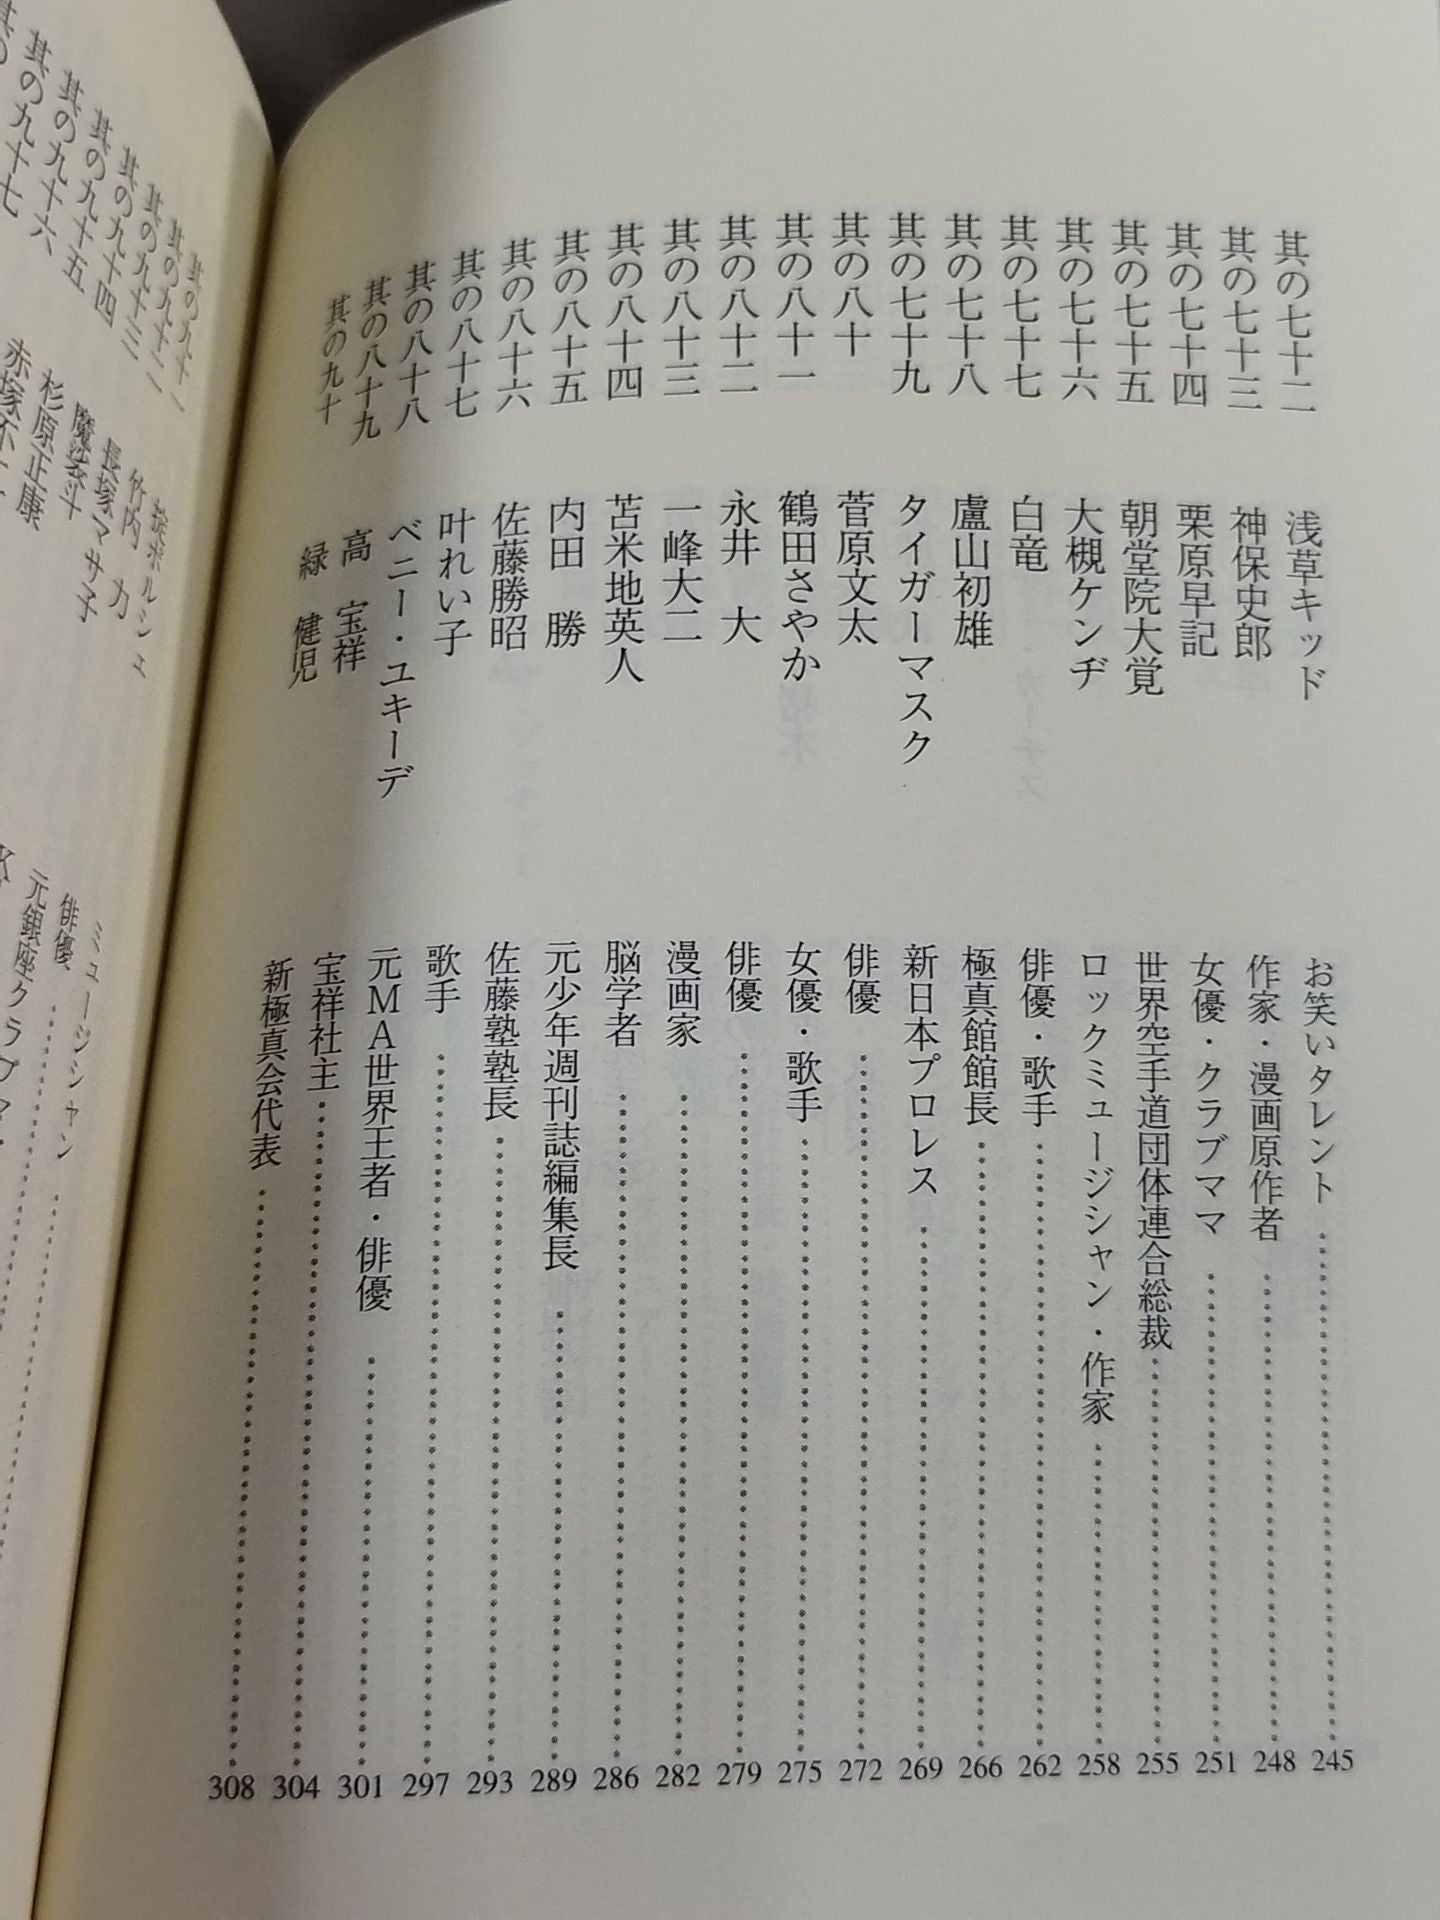 其の七十二 浅草キッド お笑いタレント 245
其の七十三 神保史郎 作家・漫画原作者 248
其の七十四 栗原早記 女優・クラブママ 251
其の七十五 朝堂院大覚 世界空手道団体連合総裁 255
其の七十六 大槻ケンヂ ロックミュージシャン・作家 258
其の七十七 白竜 俳優・歌手 262
其の七十八 盧山初雄 極真館館長 266
其の七十九 タイガーマスク 新日本プロレス 269
其の八十 菅原文太 俳優 272
其の八十一 鶴田さやか 女優・歌手 275
其の八十二 永井 大 俳優 279
其の八十三 一峰大二 漫画家 282
其の八十四 苫米地英人 脳学者 286
其の八十五 内田 勝 元少年週刊誌編集長 289
其の八十六 佐藤勝昭 佐藤塾塾長 293
其の八十七 叶れい子 歌手 297
其の八十八 ベニー・ユキーデ 元MA世界王者・俳優 301
其の八十九 高 宝祥 宝祥社主 304
其の九十 緑 健児 新極真会代表 308
其の九十一 掟ポルシェ ミュージシャン
其の九十二 竹内 力 俳優
其の九十三 長塚マサ子 元銀座クラブママ
其の九十四 魔裟斗
其の九十五 杉原正康
其の九十六 赤塚不二
其の九十七